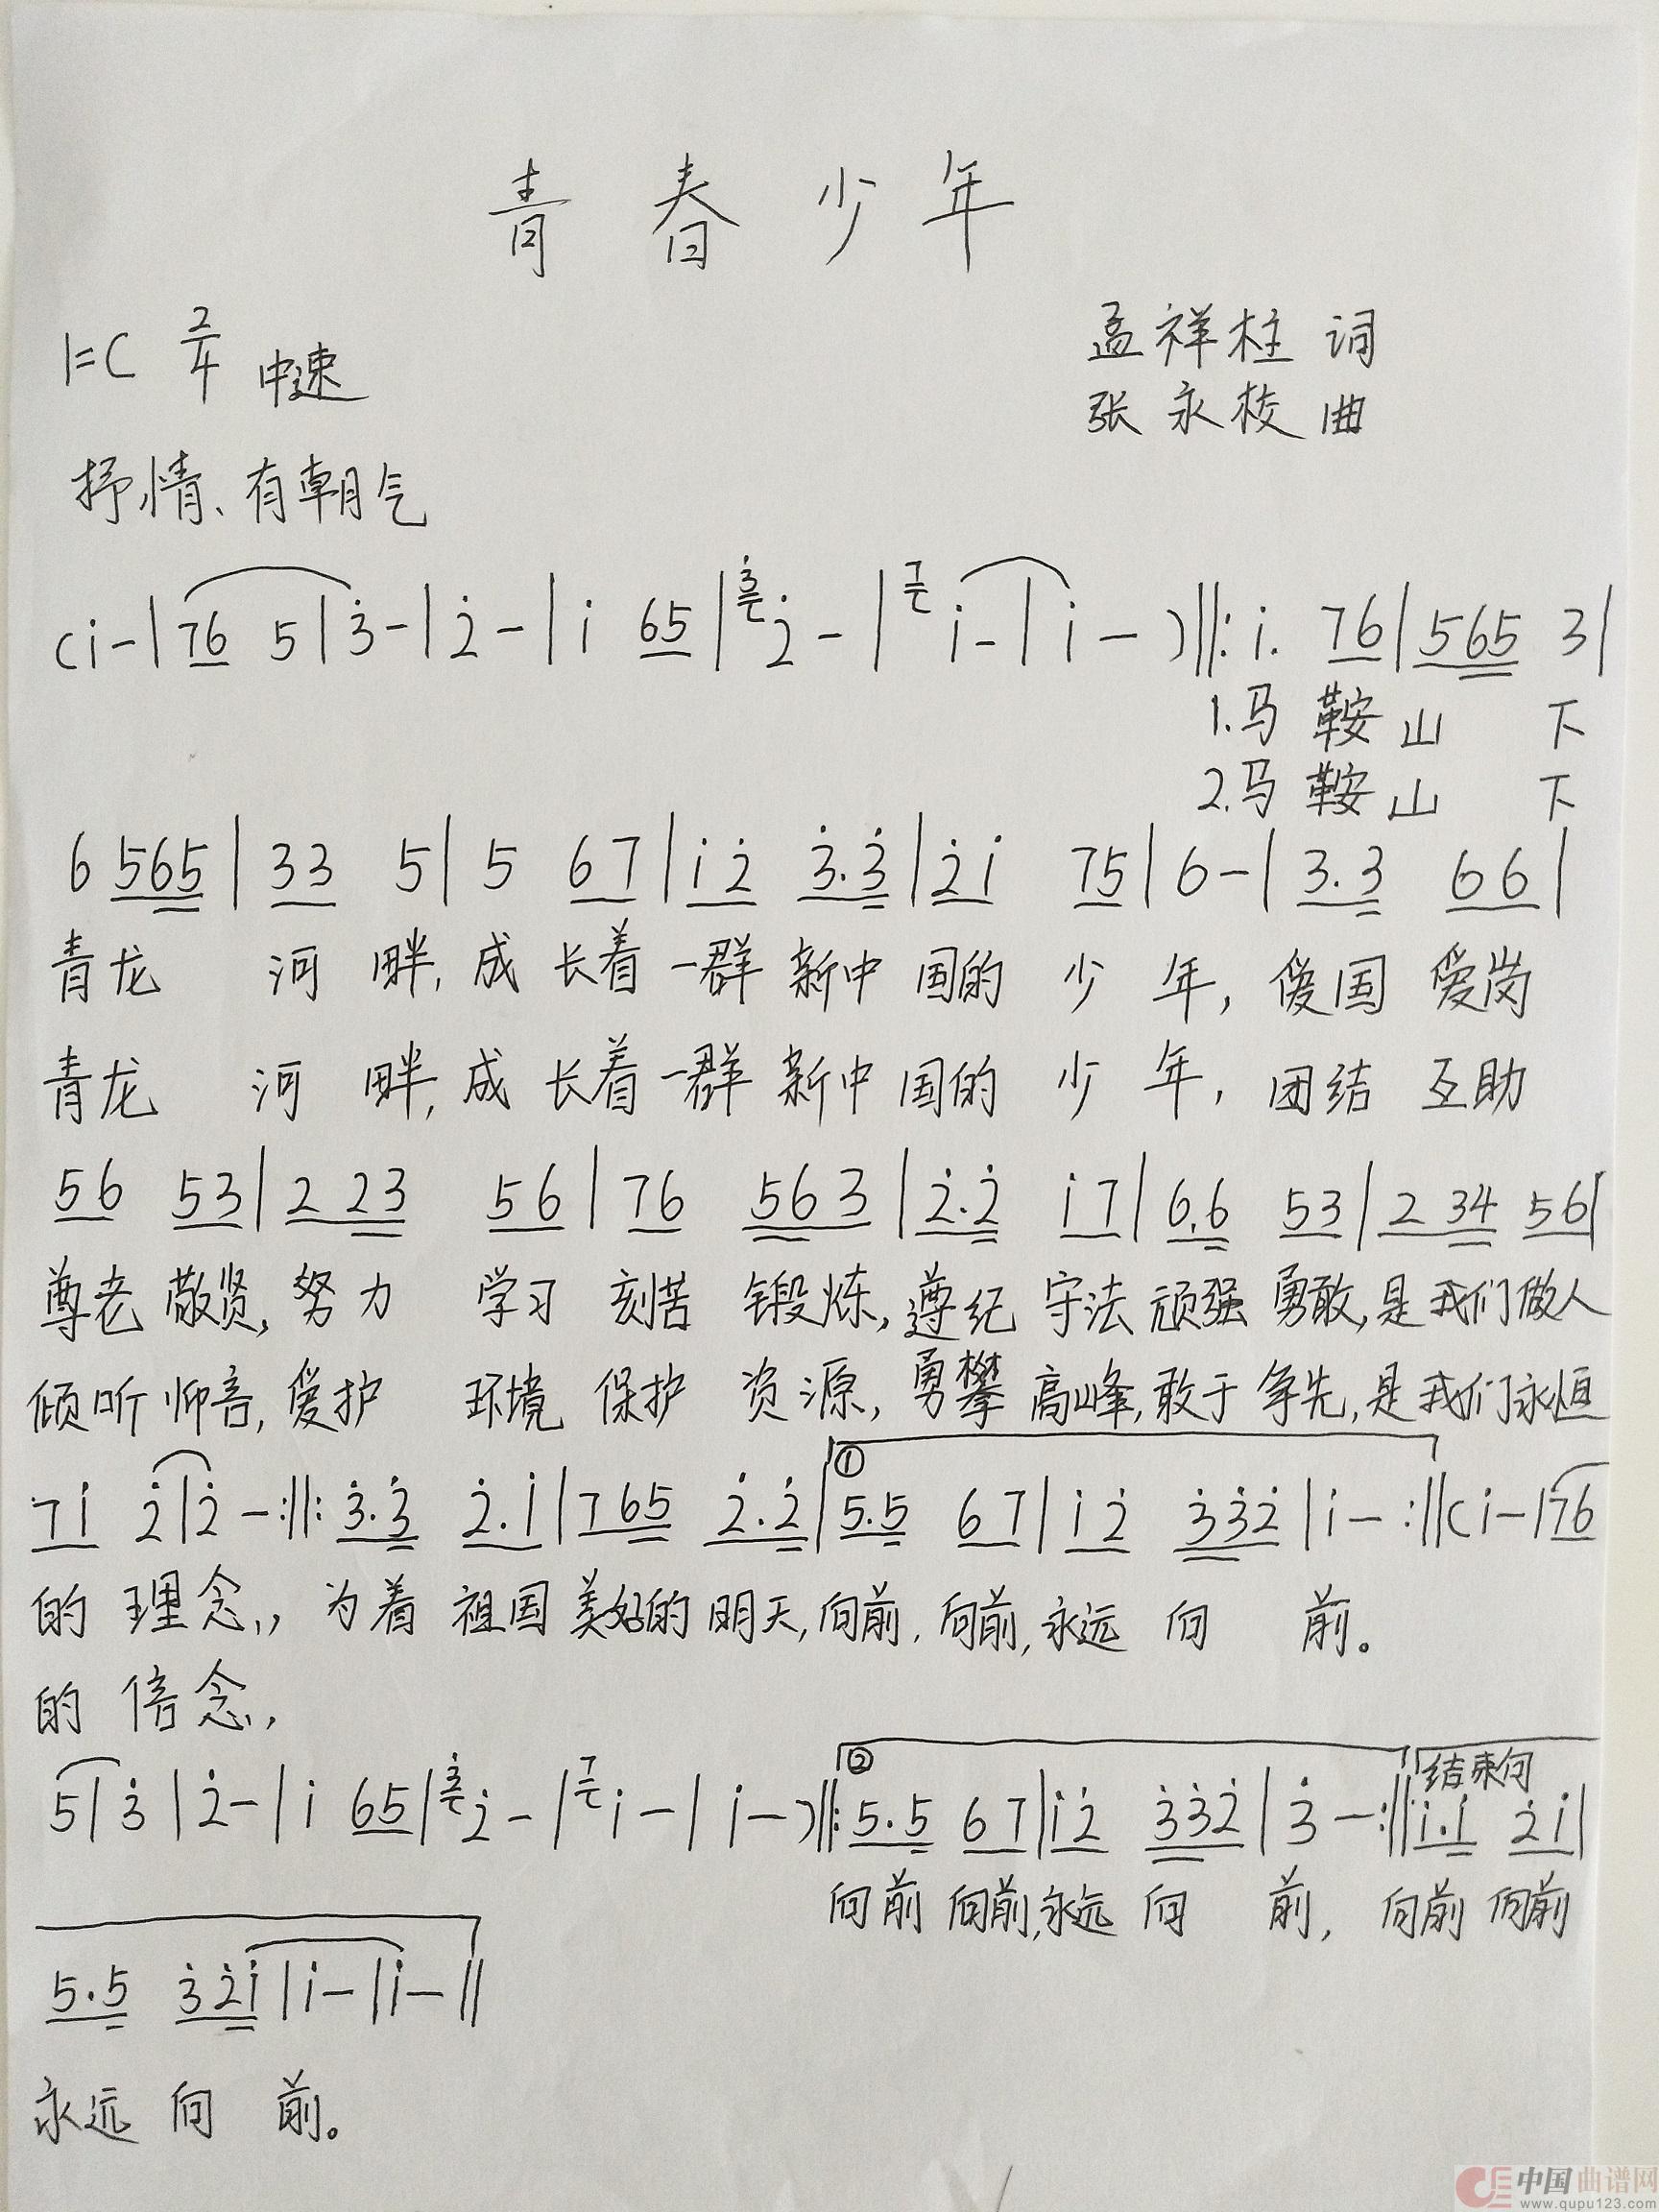 青春少年
1=C 2/4 中速
孟祥柱 词
张永校 曲
抒情、有朝气
(i-|76 5|3̇-|2̇-|i 65|3̇2̇-|7i-|i-)‖:i. 76|565 3|
1.马鞍山 下
2.马鞍山 下
6 565|33 5|5 67|i2̇ 3̇.3̇|2̇i 75|6-|3.3 66|
青龙 河 畔,成长着一群新中国的 少 年,爱国爱岗
青龙 河 畔,成长着一群新中国的 少 年,团结 互助
56 53|2 23 56|76 563|2̇.2̇ i7|6.6 53|2 34 56|
尊老敬贤,努力 学习 刻苦 锻炼,遵纪守法顽强勇敢,是我们做人
倾听师音,爱护 环境 保护 资源,勇攀高峰,敢于争先,是我们永恒
7i 2̇|2̇-:‖:3̇.3̇ 2̇.i|765 2̇.2̇|①5.5 67|i2̇ 3̇3̇2̇|i-:‖(i-|76
的 理念,,为着 祖国美好的 明天,向前,向前,永远 向 前。
的 信念,
5|3̇|2̇-|i 65|3̇2̇-|7i-|i-)‖:②5.5 67|i2̇ 3̇3̇2̇|3̇-:‖结束句 i.i 2̇i|
向前 向前,永远 向 前, 向前 向前
5.5 3̇2̇i|i-|i-‖
永远 向 前。
中国曲谱网
www.qupu123.com